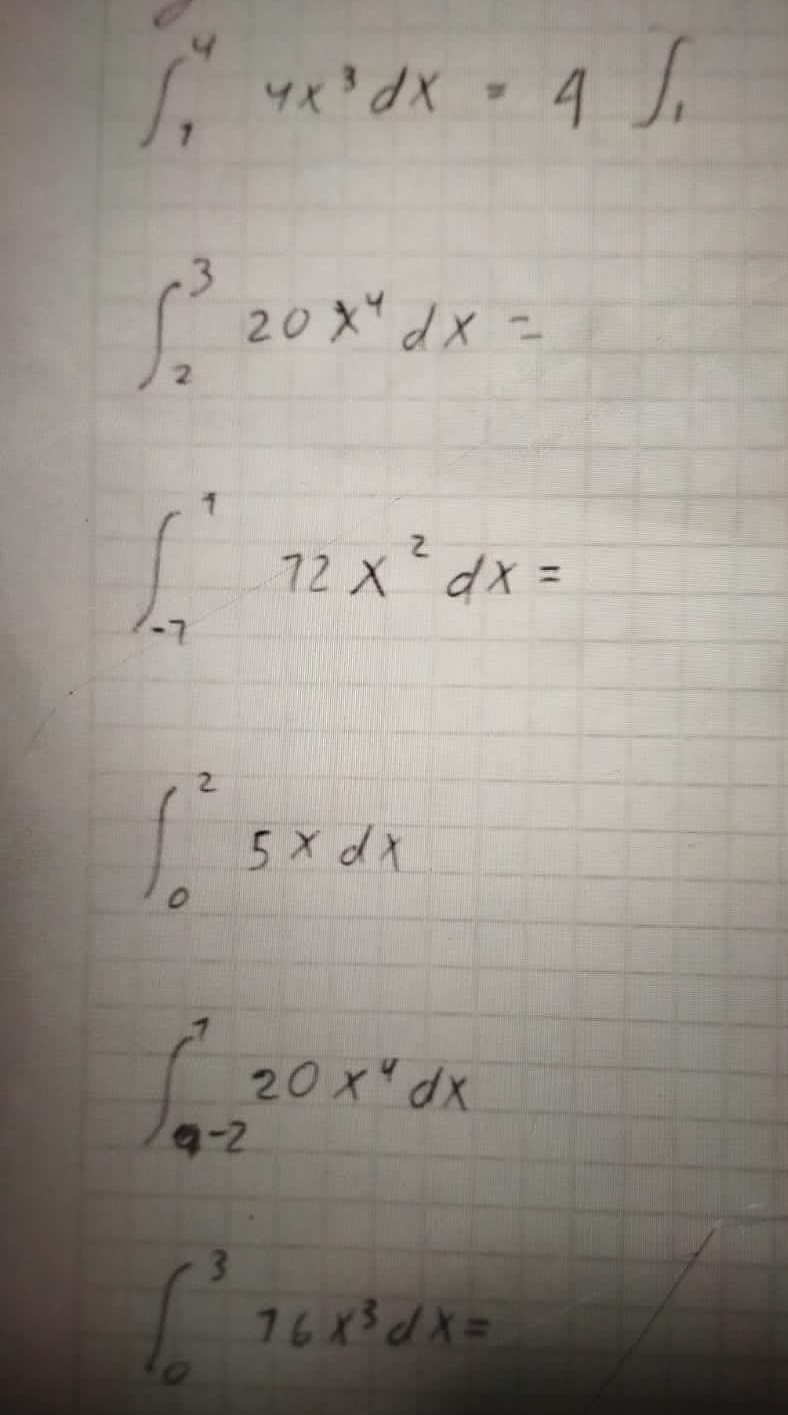 ∫₁⁴ 4x³dx = 4 ∫₁
∫₂³ 20x⁴dx =
∫₋₁¹ 12x²dx =
∫₀² 5xdx
∫₋₂¹ 20x⁴dx
∫₀³ 16x³dx =